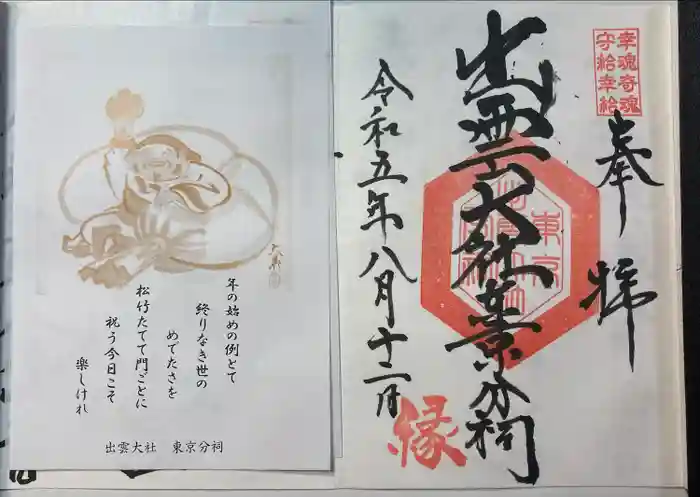 幸魂奇魂
守給幸給
奉拝
出雲大社東京分祠
東京
令和五年八月十二日
縁
年の始めの例とて
終りなき世の
めでたさを
松竹たてて門ごとに
祝う今日こそ
楽しけれ
出雲大社　東京分祠